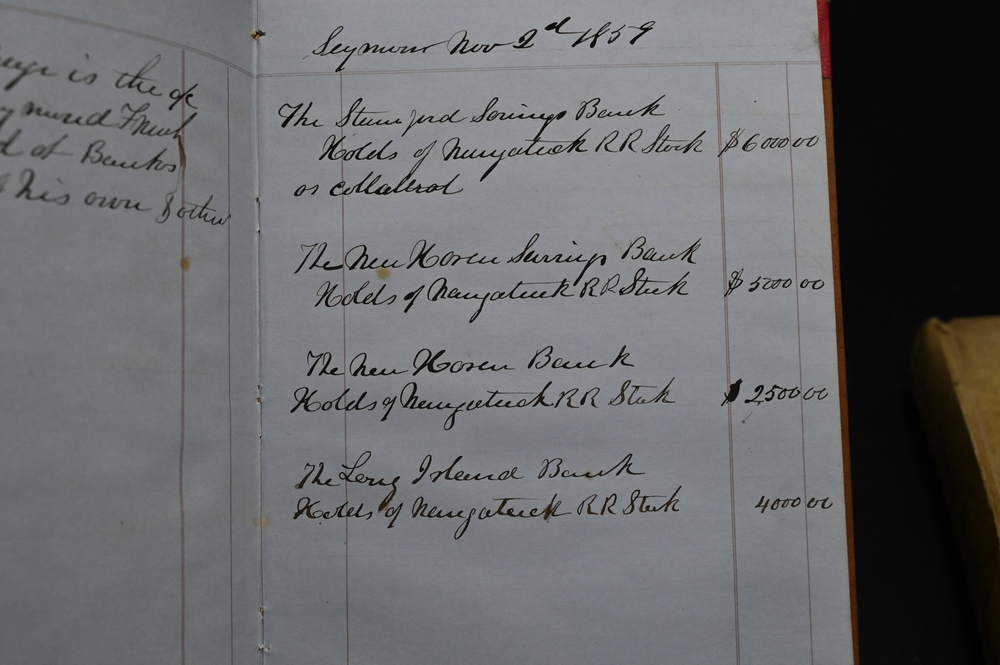 is the
d at Banks
his own & other
Seymour Nov 2d 1859
The Stamford Savings Bank
Holds of Naugatuck RR Stock $6000 00
as collateral
The New Haven Savings Bank
Holds of Naugatuck RR Stock $5000 00
The New Haven Bank
Holds of Naugatuck RR Stock $2500 00
The Long Island Bank
Holds of Naugatuck RR Stock 4000 00